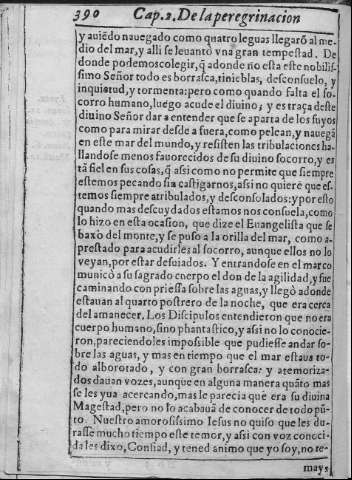 390 Cap. 2. De la peregrinacion
y auiẽdo nauegado como quatro leguas llegarõ al me-
dio del mar, y alli se leuantò vna gran tempestad. De
donde podemos colegir, q̃ adonde no esta este nobilis-
simo Señor todo es borrasca, tinieblas, desconsuelo, y
inquietud, y tormenta: pero como quando falta el so-
corro humano, luego acude el diuino; y es traça deste
diuino Señor dar a entender que se aparta de los suyos
como para mirar desde a fuera, como pelean, y nauegã
en este mar del mundo, y resisten las tribulaciones ha-
llandose menos fauorecidos de su diuino socorro, y es
tã fiel en sus cosas, q̃ assi como no permite que siempre
estemos pecando sin castigarnos, assi no quiere que es-
temos siempre atribulados, y desconsolados: y por esto
quando mas descuydados estamos nos consuela, como
lo hizo en esta ocasion, que dize el Euangelista que se
baxò del monte, y se puso a la orilla del mar, como a-
prestado para acudirles al socorro, aunque ellos no lo
veyan, por estar desuiados. Y entrandose en el mar co
municò a su sagrado cuerpo el don de la agilidad, y fue
caminando con priessa sobre las aguas, y llegò adonde
estauan al quarto postrero de la noche, que era cerca
del amanecer. Los Discipulos entendieron que no era
cuerpo humano, sino phantastico, y assi no lo conocie-
ron, pareciendoles impossible que pudiesse andar so-
bre las aguas, y mas en tiempo que el mar estaua to-
do alborotado, y con gran borrasca: y atemoriza-
dos dauan vozes, aunque en alguna manera quãto mas
se les yua acercando, mas le parecia que era su diuina
Magestad, pero no lo acabauã de conocer de todo pũ-
to. Nuestro amorosissimo Iesus no quiso que les du-
rasse mucho tiempo este temor, y assi con voz conoci-
da les dixo, Confiad, y tened animo que yo soy, no te-
mays